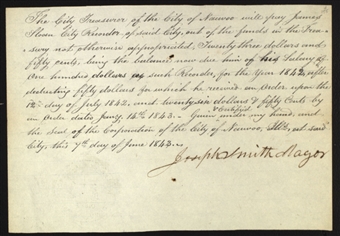 The City Treasurer of the City of Nauvoo will pay James
Sloan City Recorder, of said City, out of the funds in the Trea-
sury not otherwise appropriated, Twenty three dollars and
fifty cents, being the balance now due him of his Salary of
One hundred dollars as such Recorder, for the Year 1842, after
deducting fifty dollars for which he received an Order upon the
day of July 1842, and twenty six dollars & fifty Cents by
an Order dated, Jany. 14th 1843. — Given under my hand, and
the Seal of the Corporation of the City of Nauvoo, Ills, at said
City, this 7th day of June 1843. —
Joseph Smith Mayor